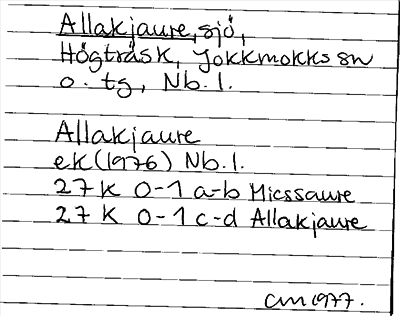 Allakjaure, sjö,
Högträsk, Jokkmokks sn
o. tg, Nb. l.
Allakjaure
ek (1976) Nb. l.
27 K 0-1 a-b Micssaure
27 K 0-1 c-d Allakjaure
CM 1977.